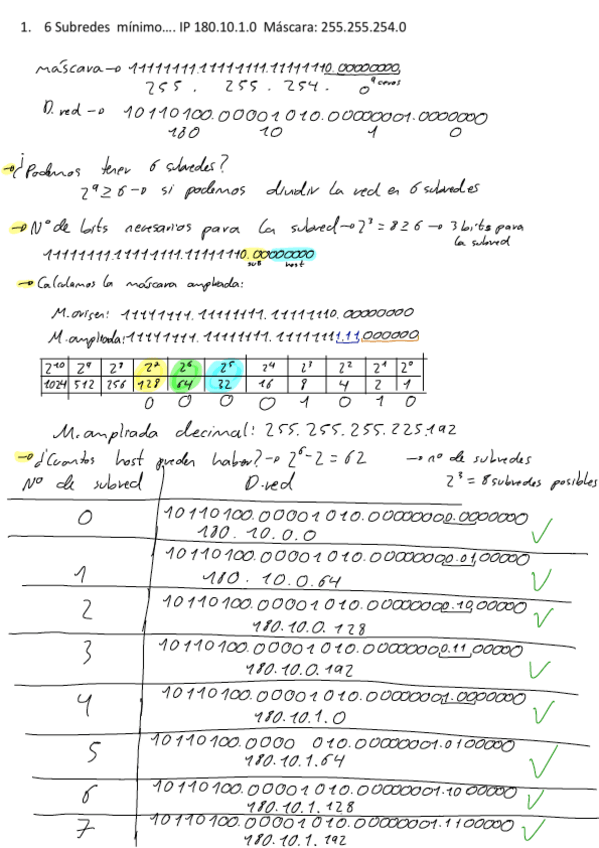 1. 6 Subredes mínimo.... IP 180.10.1.0 Máscara: 255.255.254.0
máscara→ 11111111.11111111.11111110.00000000
255 . 255 . 254 . 0 9 ceros
D. red → 10110100.00001010.00000001.0000000
180 10 1 0
→ ¿Podemos tener 6 subredes?
2⁹ ≥ 6 → si podemos dividir la red en 6 subredes
→ Nº de bits necesarios para la subred → 2³ = 8 ≥ 6 → 3 bits para la subred
11111111.11111111.11111110.00000000
sub host
→ Calculamos la máscara ampliada:
M. origen: 11111111.11111111.11111110.00000000
M. ampliada: 11111111.11111111.11111111.11,000000
2¹⁰ 2⁹ 2⁸ 2⁷ 2⁶ 2⁵ 2⁴ 2³ 2² 2¹ 2⁰
1024 512 256 128 64 32 16 8 4 2 1
0 0 0 0 1 0 1 0
M. ampliada decimal: 255.255.255.225.192
→ ¿Cuantos host pueden haber? → 2⁶-2 = 62 → nº de subredes
Nº de subred D. red 2³ = 8 subredes posibles
0 10110100.00001010.00000000.00000000 ✓
180.10.0.0
1 10110100.00001010.00000000.01,00000 ✓
180.10.0.64
2 10110100.00001010.00000000.10,00000 ✓
180.10.0.128
3 10110100.00001010.00000000.11,00000 ✓
180.10.0.192
4 10110100.00001010.00000001.0000000 ✓
180.10.1.0
5 10110100.0000 010.00000001.0100000 ✓
180.10.1.64
6 10110100.00001010.00000001.1000000 ✓
180.10.1.128
7 10110100.00001010.00000001.1100000 ✓
180.10.1.192